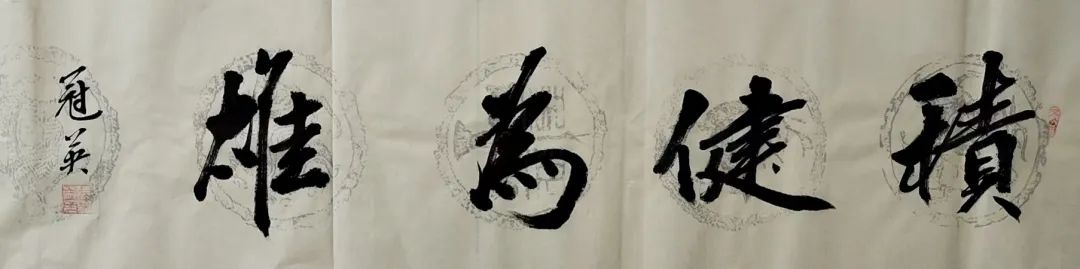 積健為雄
冠英